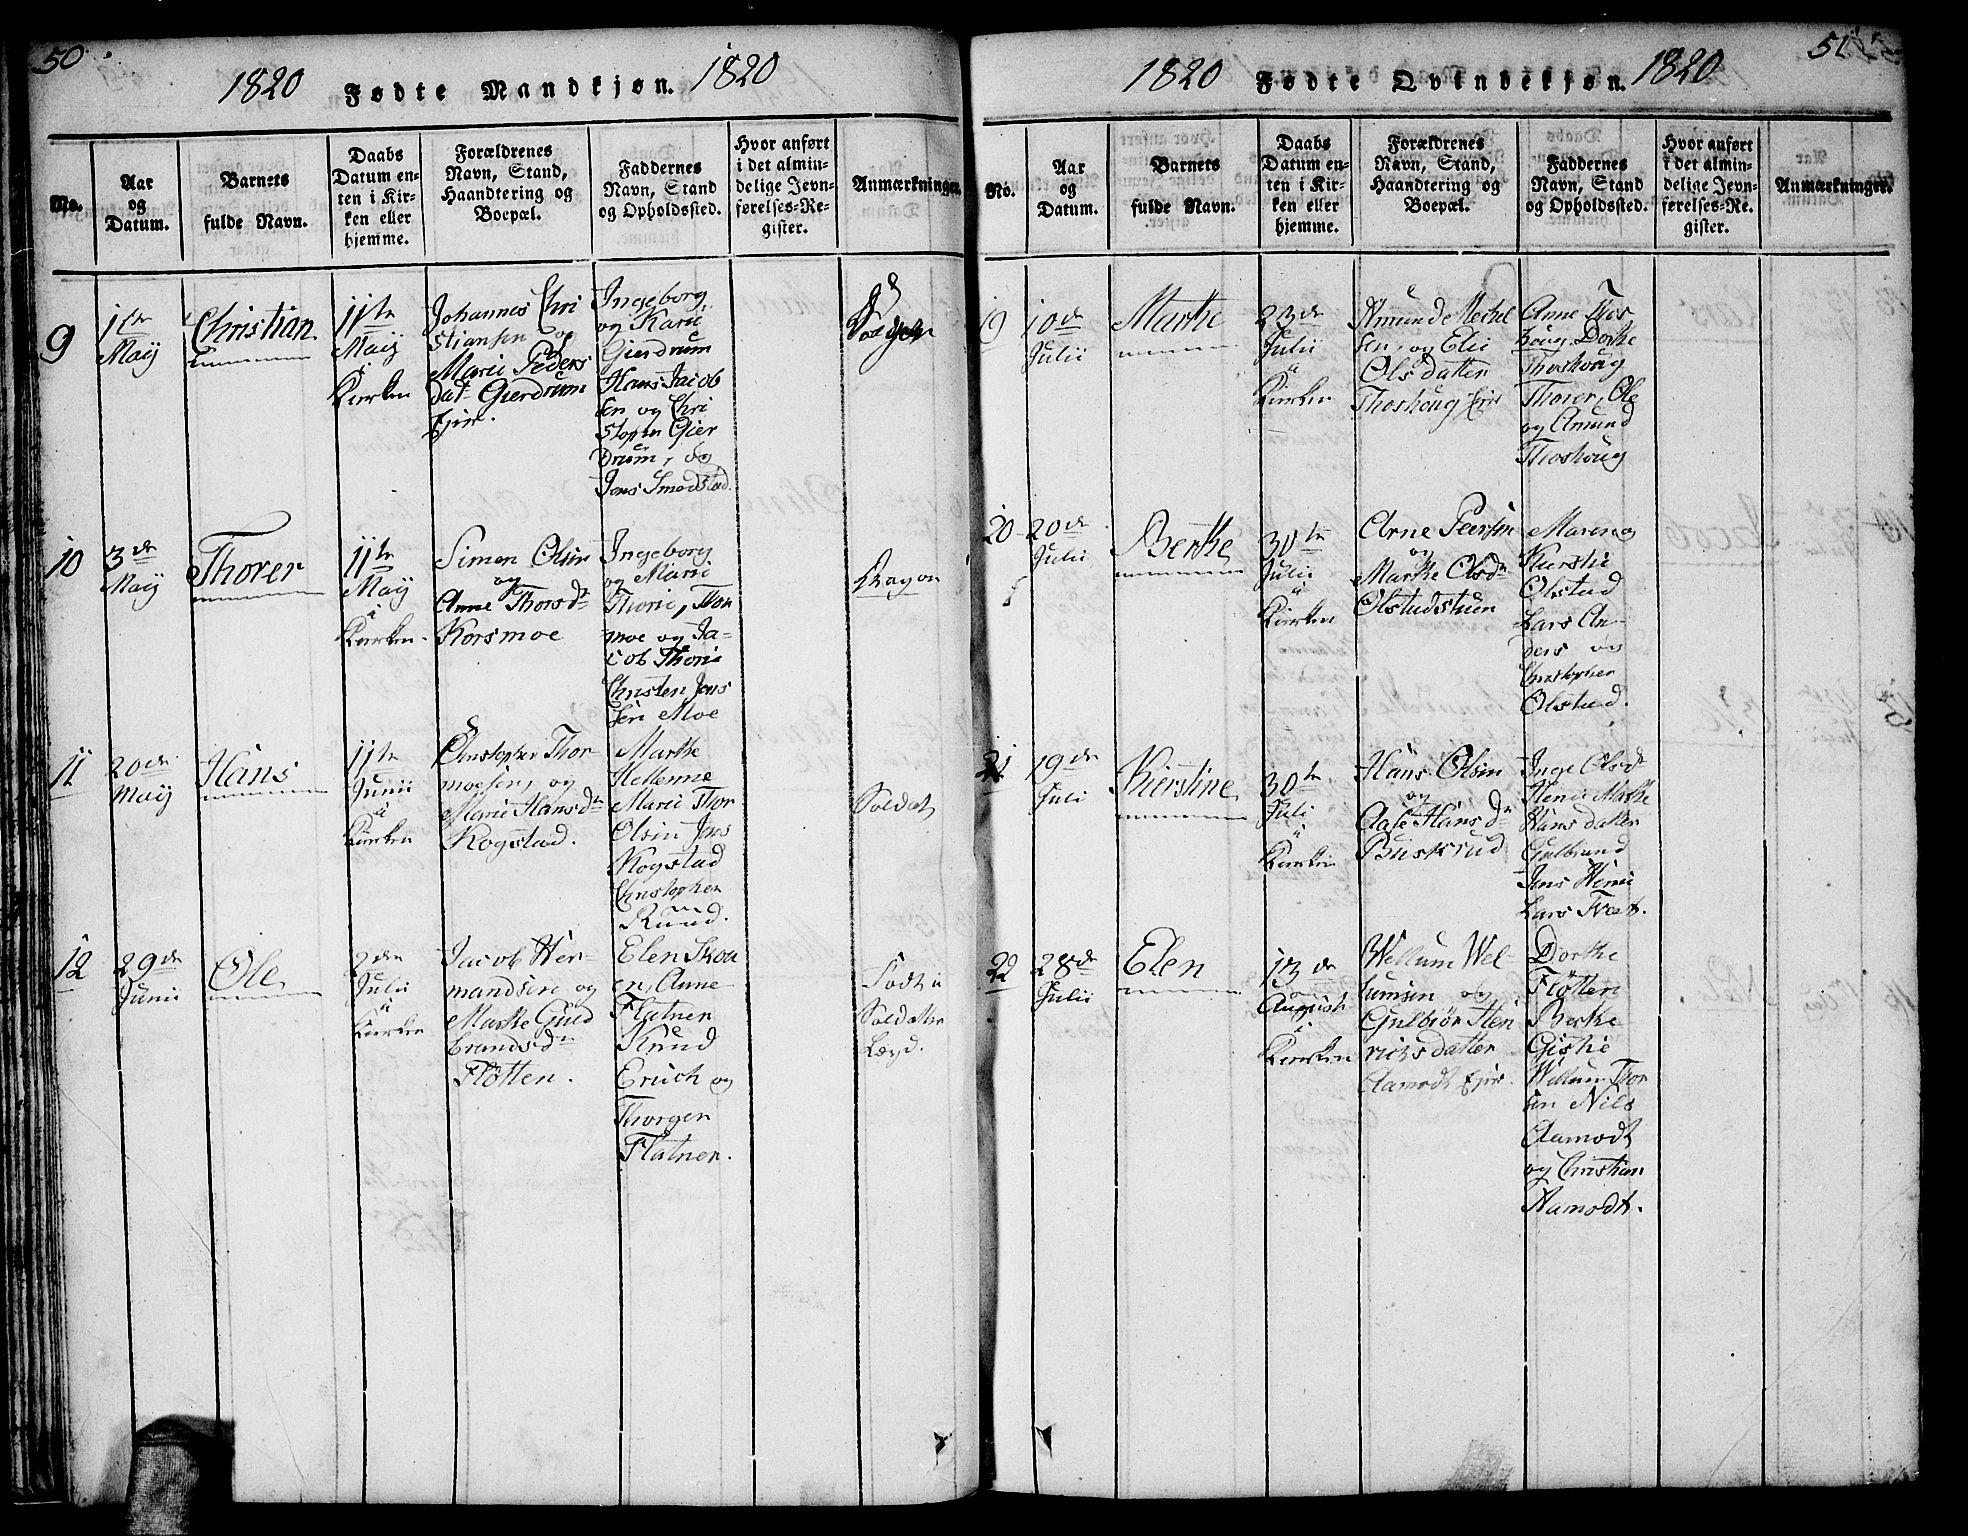 50.
1820 Fødte Mandkjøn. 1820
No.
Aar
og
Datum.
Barnets
fulde Navn.
Daabs
Datum en-
ten i Kir-
ken eller
hjemme.
Forældrenes
Navn, Stand,
Haandtering og
Boepæl.
Faddernes
Navn, Stand
og Opholdssted.
Hvor anført
i det almin-
delige Jevn-
førelses-Re-
gister.
Anmærkninger.
9
1te
Maij
Christian
11te
Maij
i
Kierken
Johannes Chri
stiansen og
Marie Peders
dat Gierdrum
Ejer.
Ingeborg
og Karie
Gierdrum
Hans Jacob
sen og Chri
stopher Gier
drum, og
Jens Smedstad.
10
3de
Maij
Thorer
11te
Maij
i
Kierken.
Simen Olsen
og
Anne Thorsdr
Korsmoe
Ingeborg
og Marie
Thorie, Thor
moe og Ja-
cob Thorie
Christen Jens
sen Moe
Dragon
11
20de
Maij
Hans
11te
Junii
i
Kierken
Christopher Thor
moesen, og
Marie Hansdr
Kogstad.
Marthe
Hellerine
Marie Thor
Olsen Jens
Kogstad
Christopher
Ruud.
Soldat
12
29de
Junii
Ole
2den
Julii
i
Kierken
Jacob Her-
mandsen og
Marthe Guld
brandsdr
Fløtten.
Elen Skoa
en, Anne
Flatner
Knud
Erich og
Thorgen
Flatner.
Født i
Soldatter
Lægd.
51
1820 Fødte Qvindekjøn. 1820
No.
Aar
og
Datum.
Barnets
fulde Navn.
Daabs
Datum en-
ten i Kir-
ken eller
hjemme.
Forældrenes
Navn, Stand,
Haandtering og
Boepæl.
Faddernes
Navn, Stand
og Opholdssted.
Hvor anført
i det almin-
delige Jevn-
førelses-Re-
gister.
Anmærkninger.
19
10de
Julii
Marthe
23de
Julii
i
Kierken
Amund Mickel
sen, og Elie
Olsdatter
Thoshoug Ejer
Anne Thos
houg, Dorthe
Thoshoug
Thorer, Ole
og Amund
Thoshoug
20
20de
Julii
Berthe
30te
Julii
i
Kierken
Arne Peersen
og
Marthe Olsdr
Olstadstuen
Maren og
Kierstie
Olstad
Lars An-
ders og
Christopher
Olstad.
21
19de
Juli
Kierstine
30te
Juli
i
Kierken
Hans Olsen
og
Aase Hansdr
Buskrud
Inge Olsdr
Henie Marthe
Hansdatter
Gulbrand
Jens Henie
Lars Tvet.
22
28de
Julii
Elen
13de
August
i
Kierken
Wellum Wel-
lumsen og
Gulbiør Hen
richsdatter
Aamodt Ejer.
Dorthe
Fløtten
Berthe
Giskie
Wellum Thor
sen Nils
Aamodt
og Christian
Aamodt.